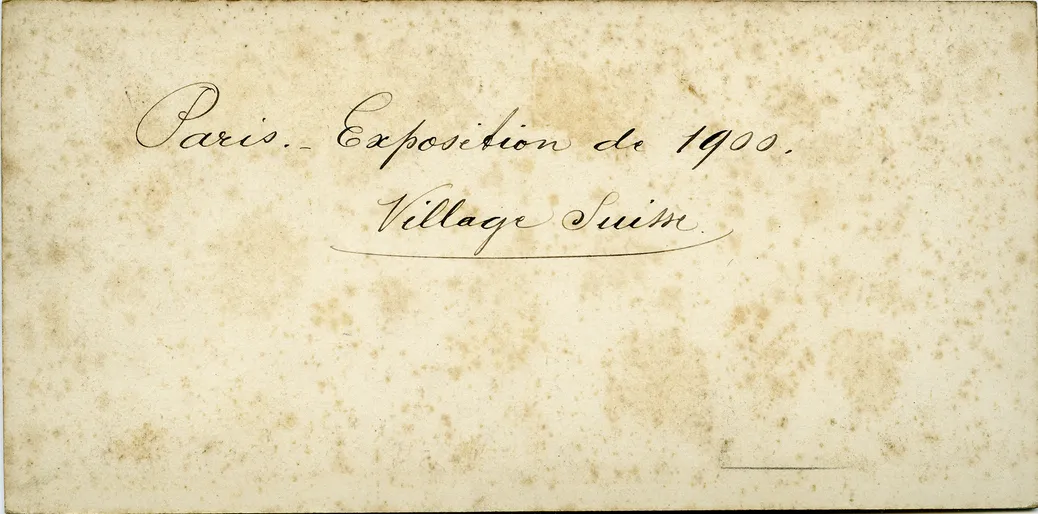 Paris. - Exposition de 1900.
Village Suisse.